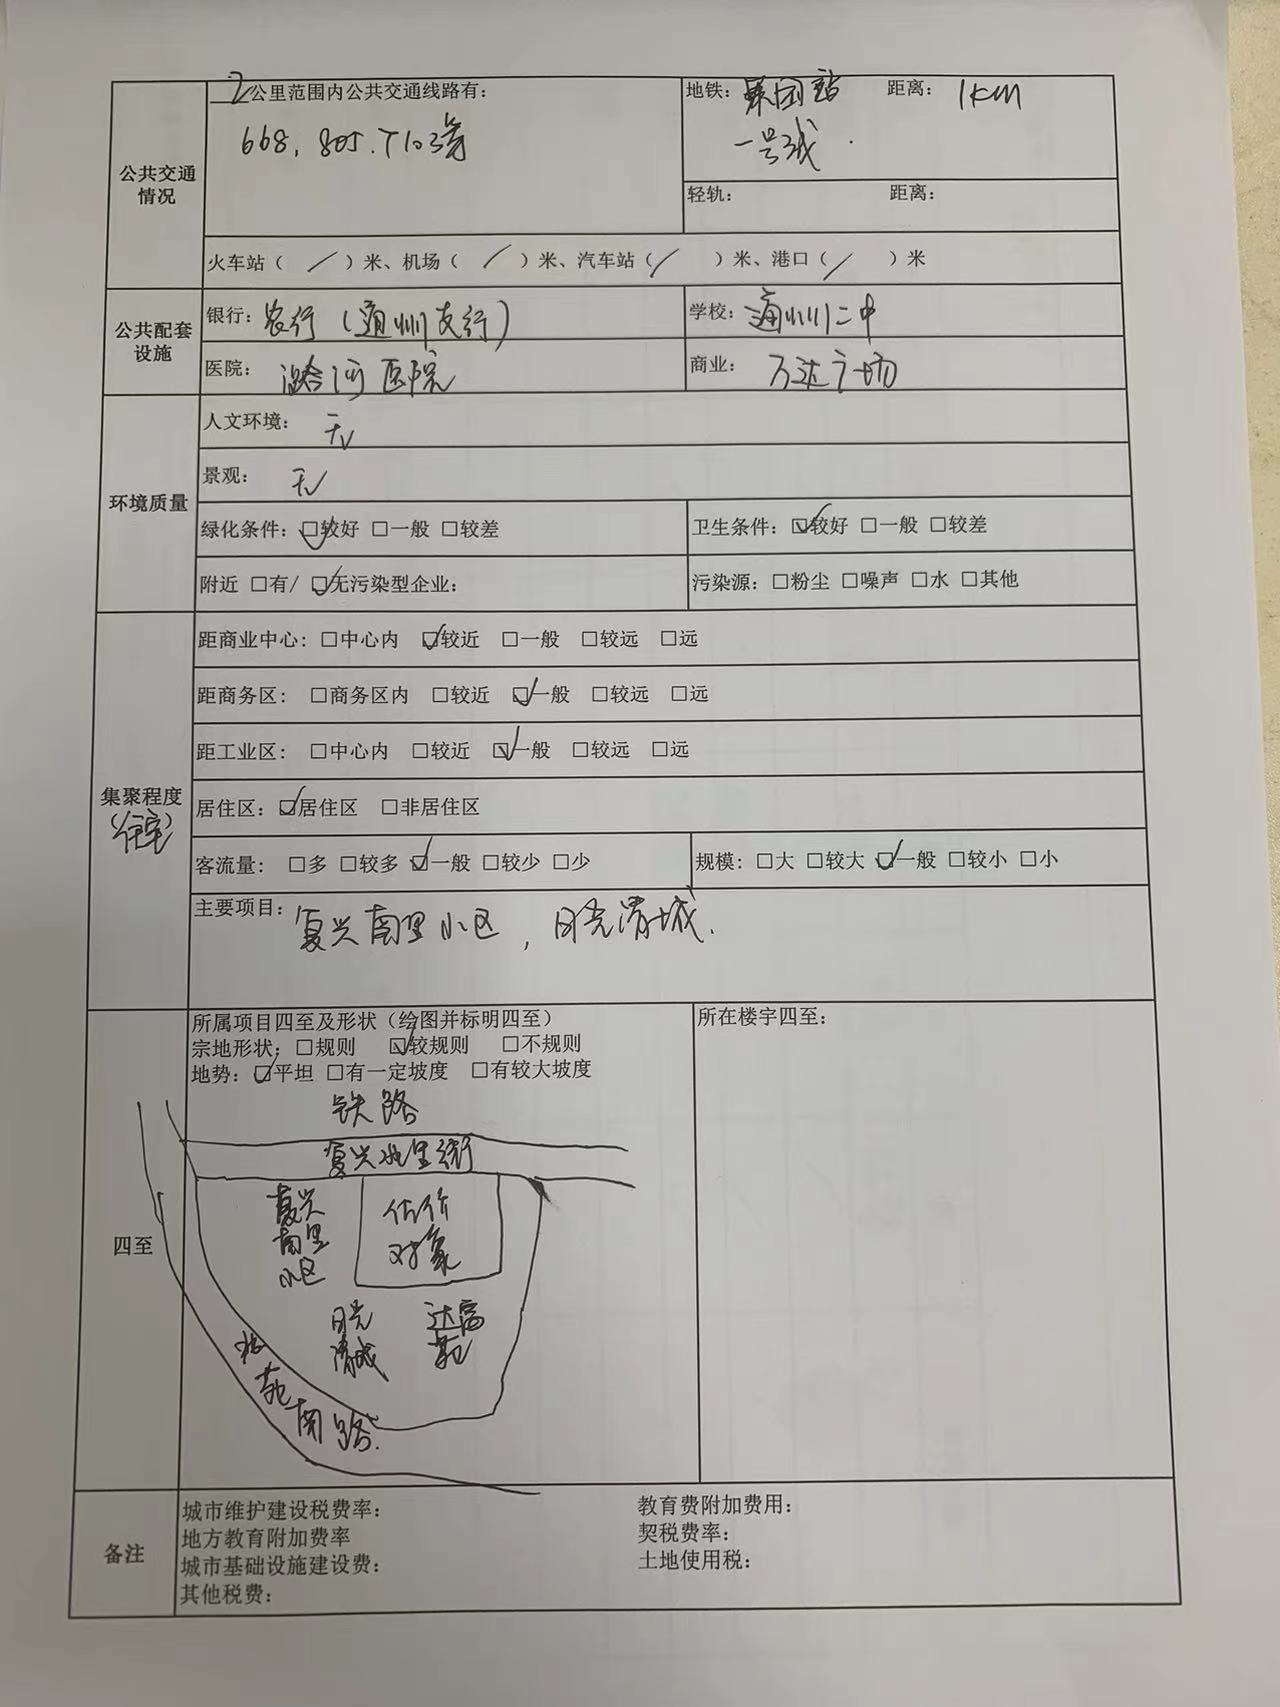 2公里范围内公共交通线路有：
668，805，T103等
地铁：果园站 距离：1KM
一号线
公共交通情况
轻轨： 距离：
火车站（ / ）米、机场（ / ）米、汽车站（ / ）米、港口（ / ）米
公共配套设施
银行：农行（通州支行）
学校：通州二中
医院：潞河医院
商业：万达广场
环境质量
人文环境：无
景观：无
绿化条件：☑较好 □一般 □较差
卫生条件：☑较好 □一般 □较差
附近 □有/ ☑无污染型企业：
污染源：□粉尘 □噪声 □水 □其他
集聚程度
（住宅）
距商业中心：□中心内 ☑较近 □一般 □较远 □远
距商务区：□商务区内 □较近 ☑一般 □较远 □远
距工业区：□中心内 □较近 ☑一般 □较远 □远
居住区：☑居住区 □非居住区
客流量：□多 □较多 ☑一般 □较少 □少
规模：□大 □较大 ☑一般 □较小 □小
主要项目：复兴南里小区，月亮湾城.
四至
所属项目四至及形状（绘图并标明四至）
宗地形状：□规则 ☑较规则 □不规则
地势：☑平坦 □有一定坡度 □有较大坡度
铁路
复兴北里街
复兴
南里
小区
估价
对象
达富
苑
南路
所在楼宇四至：
备注
城市维护建设税费率：
教育费附加费用：
地方教育附加费率
契税费率：
城市基础设施建设费：
土地使用税：
其他税费：